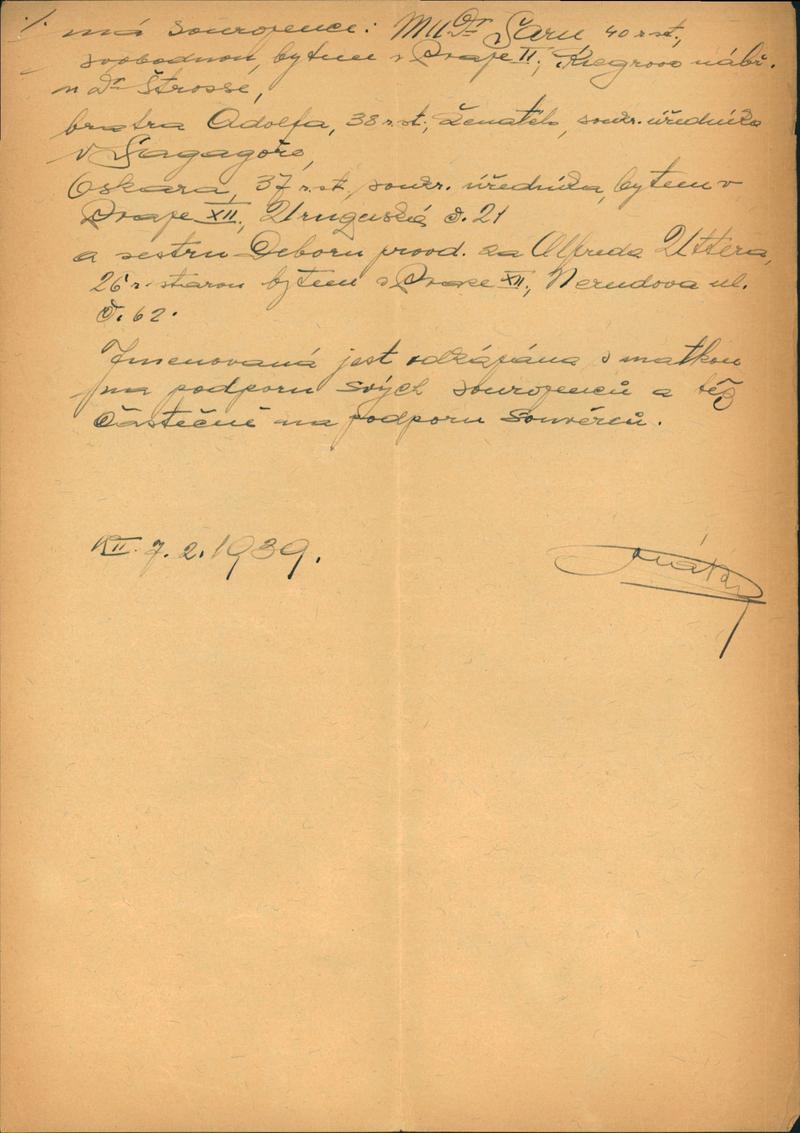 ./. má sourozence: MUDr Saru 40 r. st.,
svobodnou, bytem v Praze II., Riegrovo nábř.
u Dr Štrosse,
bratra Adolfa, 38 r. st., ženatého, soukr. úředníka
v Sagagoře,
Oskara, 37 r. st., soukr. úředníka, bytem v
Praze XII., Uruguaská č. 21
a sestru Deboru provd. za Alfreda Uttera,
26 r. starou bytem v Praze XII., Nerudova ul.
č. 62.
Jmenovaná jest odkázána s matkou
na podporu svých sourozenců a též
částečně na podporu souvěrců.
7. 2. 1939.